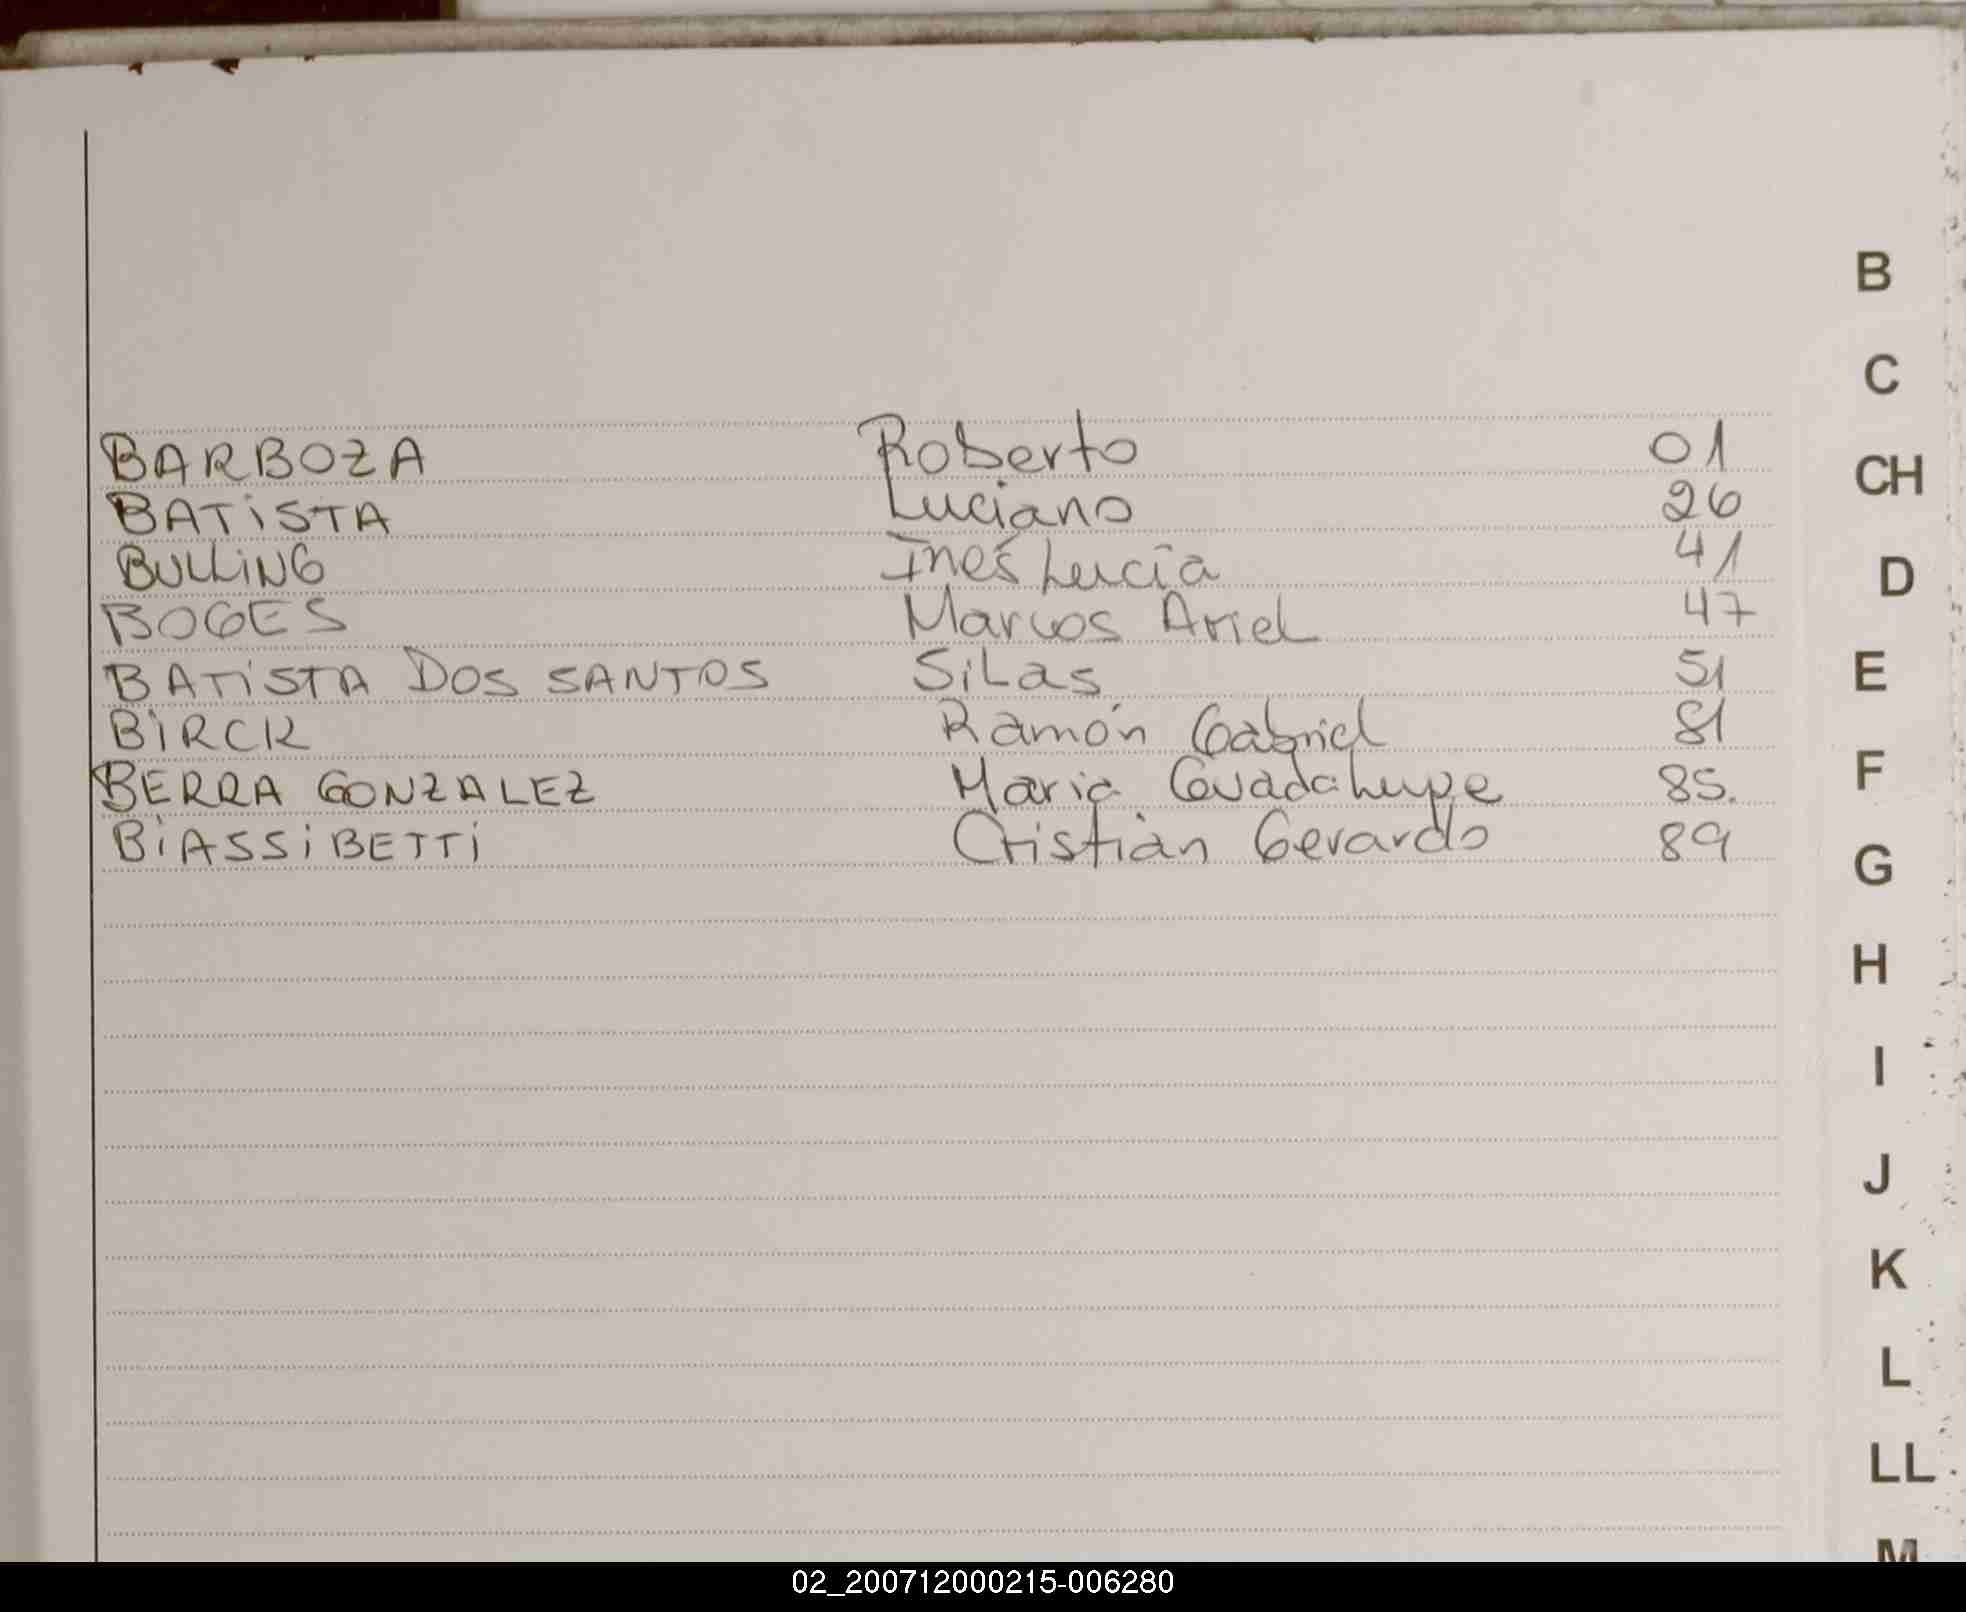 BARBOZA Roberto 01
BATISTA Luciano 26
BULLING Inés Lucía 41
BOGES Marcos Ariel 47
BATISTA DOS SANTOS Silas 51
BIRCK Ramón Gabriel 81
BERRA GONZALEZ Maria Guadalupe 85.
BIASSIBETTI Cristian Gerardo 89
B
C
CH
D
E
F
G
H
I
J
K
L
LL
M
02_200712000215-006280